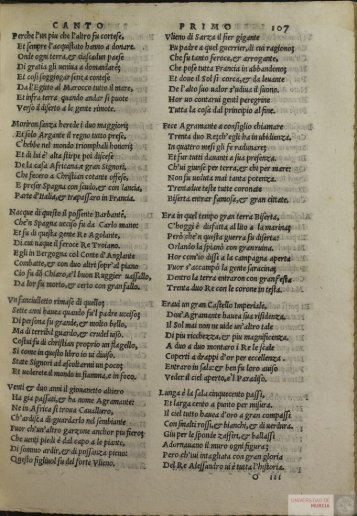 CANTO PRIMO 107
Perche l'un piu che l'altro fu cortese,
Et sempre l'acquistato hanno a donare,
Onde ogni terra, et ciascadun paese
Di gratia gli uenia a domandare;
Et cosi soggiogar senza contese
Da l'Egitto al Marocco tutto il mare,
Et infra terra quando andar si puote
Verso il diserto a le gente rimote.
Moriron senza herede i duo maggiori;
Et solo Argante il regno tutto prese,
C'hebbe nel mondo triomphali honori;
Et di lui e alta stirpe poi discese
De la casa Africana gran Signori,
Che fecero a Christian cotante offese.
E preser Spagna con scudo, et con lancia,
Parte d'Italia, et trapassaro in Francia.
Nacque di questo il possente Barbante,
Che'n Spagna ucciso fu da Carlo mano:
Et fu di questa gente Re Agolante,
Di cui nacque il feroce Re Troiano.
Egli in Bergogna col Conte d'Anglante
Combatte, et con duo altri sopr'al piano
Cio fu dō Chiaro, e'l buon Ruggier uassallo,
Da lor fu morto, et certo con gran fallo.
Vn fanciulletto rimase di quello;
Sette anni hauea quando fu'l padre ucciso:
Di persona fu grande, et molto bello,
Ma di terribil guardo, et crudel uiso.
Costui fu di christian proprio un flagello,
Si come in questo libro io ui diuiso.
State Signori ad ascoltarmi un poco;
Et uederete il mondo in fiamma, e in foco.
Venti et duo anni il giouanetto altiero
Ha gia passati, et ha nome Agramante;
Ne in Africa si troua Caualliero,
Ch'ardisca di guardarlo nel sembiante,
Fuor ch'un'altro garzone anchor piu fiero;
Che uenti piedi e dal capo a le piante,
Di sommo ardir, et di possanza pieno:
Questo figliuol fu del forte Vlieno.
Vlieno di Sarza il fier gigante
Fu padre a quel guerrier, di cui ragiono;
Che fu tanto feroce, et arrogante,
Che pose tutta Francia in abbandono;
Et doue il Sol si corca, et da leuante
De l'alto suo ualor s'udiua il suono.
Hor uo contarui gente peregrine
Tutta la cosa dal principio al fine.
Fece Agramante a consiglio chiamare
Trenta duo Re, ch'egli ha in ubidienza,
In quattro mesi gli fe radunare;
Et fur tutti dauanti a sua presenza.
Ch'ui giunse per terra, et chi per mare:
Non fu ueduta mai tanta potenza.
Trentadue teste tutte coronate
Biserta entraro famosa, et gran cittate.
Era in quel tempo gran terra Biserta,
C'hoggi è disfatta, al lito a la marina;
Però che'n questa guerra fu diserta:
Orlando la spianò con gran ruina.
Hor com'io dissi a la campagna aperta
Fuor s'accampò la gente saracina;
Dentro la terra entraron con gran festa
Trenta duo Re con le corone in testa.
Eraui un gran Castello Imperiale,
Dou'Agramante hauea sua residenza.
Il Sol mai non ne uide un'altro tale
Di piu ricchezza, et piu magnificenza.
A duo a duo montaro i Re le scale
Coperti a drappi d'or per eccellenza.
Entraro in sala: et ben fu loro auiso
Veder il ciel aperto, e'l Paradiso.
Lunga è la sala cinquecento passi,
Et larga cento a punto per misura.
Il ciel tutto hauea d'oro a gran compassi
Con smalti rossi, et bianchi, et di uerdura.
Giu per le sponde zaffiri, et ballassi
Adornauano il muro ogni figura;
Pero ch'iui intagliata con gran gloria
Del Re Alessandro ui è tutta l'historia.
O iii
UNIVERSIDAD DE
MURCIA